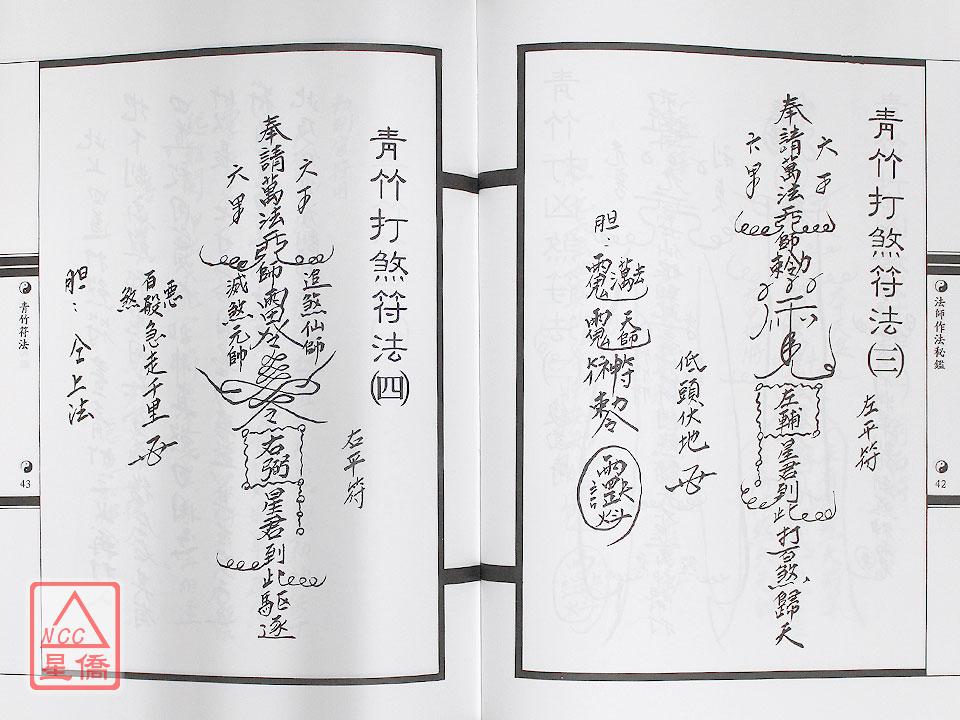 青竹打煞符法㈢
左平符
六丁
奉請萬法祖師勅
六甲
左輔星君到此打百煞歸天
低頭伏地
胆：
萬法
天師
符神勅令
法師作法秘鑑
42
青竹打煞符法㈣
右平符
六丁
追煞仙師
奉請萬法祖師雷令
右弼星君到此驅逐
六甲
滅煞元帥
惡
百般急走千里
煞
胆：仝上法
青竹符法
43
NCC
星僑